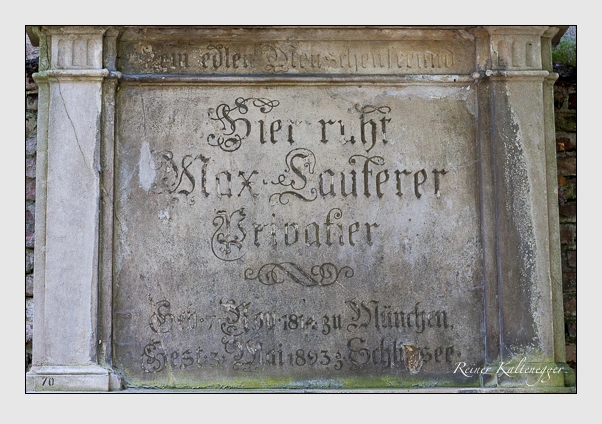 Dem edlen Menschenfreund
Hier ruht
Max Lauterer
Privatier
Geb. Nov. zu München,
Gest. Mai 1893 Schliersee.
70
Reiner Kaltenegger